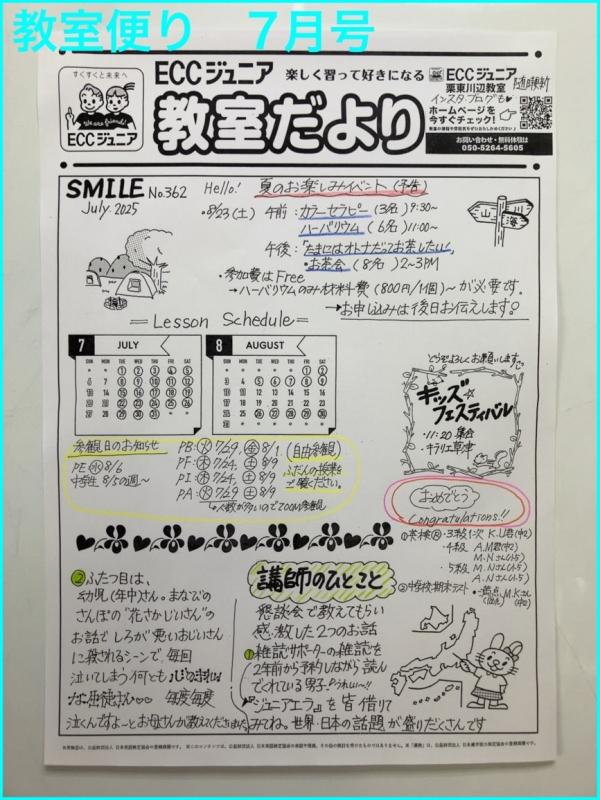 教室便り 7月号
すくすくと未来へ
We are friends!
ECCジュニア
ECCジュニア 楽しく習って好きになる
教室だより
ECCジュニア
栗東川辺教室
随時更新
インスタ・ブログも♥
ホームページを
今すぐチェック!
お問い合わせ・無料体験は
050-5264-5605
SMILE No.362
July. 2025
Hello! 夏のお楽しみイベント(予告)
・8/23(土) 午前:カラーセラピー(3名)9:30~
ハーバリウム(6名)11:00~
午後:「たまにはオトナだってお茶したい」
・お茶会(8名)2~3PM
・参加費はFree
→ハーバリウムのみ材料費(800円/1個)~が必要です。
→お申し込みは後日お伝えします!
山 川 海
=Lesson Schedule=
7 JULY
SUN MON TUE WED THU FRI SAT
1 2 3 4 5
6 7 8 9 10 11 12
13 14 15 16 17 18 19
20 21 22 23 24 25 26
27 28 29 30 31
8 AUGUST
SUN MON TUE WED THU FRI SAT
1 2
3 4 5 6 7 8 9
10 11 12 13 14 15 16
17 18 19 20 21 22 23
24 25 26 27 28 29 30
31
どうぞよろしくお願いします
キッズ☆
フェスティバル
・11:20 集合
・キラリエ草津
参観日のお知らせ
PE(水)8/6
中学生 8/5の週~
PB:(火)7/29、(金)8/1
PF:(木)7/24、(土)8/9
PI:(木)7/24、(土)8/9
PA:(火)7/29 (土)8/9
(自由参観)
ふだんの授業を
ご覧ください。
→人数が多いのでZOOM参観
おめでとう
Congratulations!!
①英検Ⓡ・3級1次 K.U君(中2)
・4級 A.M君(中2)
M.Nさん(小5)
・5級 M.Nさん(小5)
A.Nさん(小5)
②中学校・期末テスト
・満点 M.Kさん(中2)
講師のひとこと
懇談会で教えてもらい
感激した2つのお話
①雑誌サポーターの雑誌を
2年前から予約しながら読ん
でくれている男子。うれし~!!
『ジュニアエラ』を皆借りて
みてね。世界・日本の話題が盛りだくさんです
②ふたつ目は、
幼児(年中)さん。まなびの
さんぽの"花さかじいさん"の
お話でしろが悪いおじいさん
に殺されるシーンで毎回
泣いてしまう何とも心のきれい
な生徒さん♡♡ 毎度毎度
泣くんですよーとお母さんが教えてくださいました。